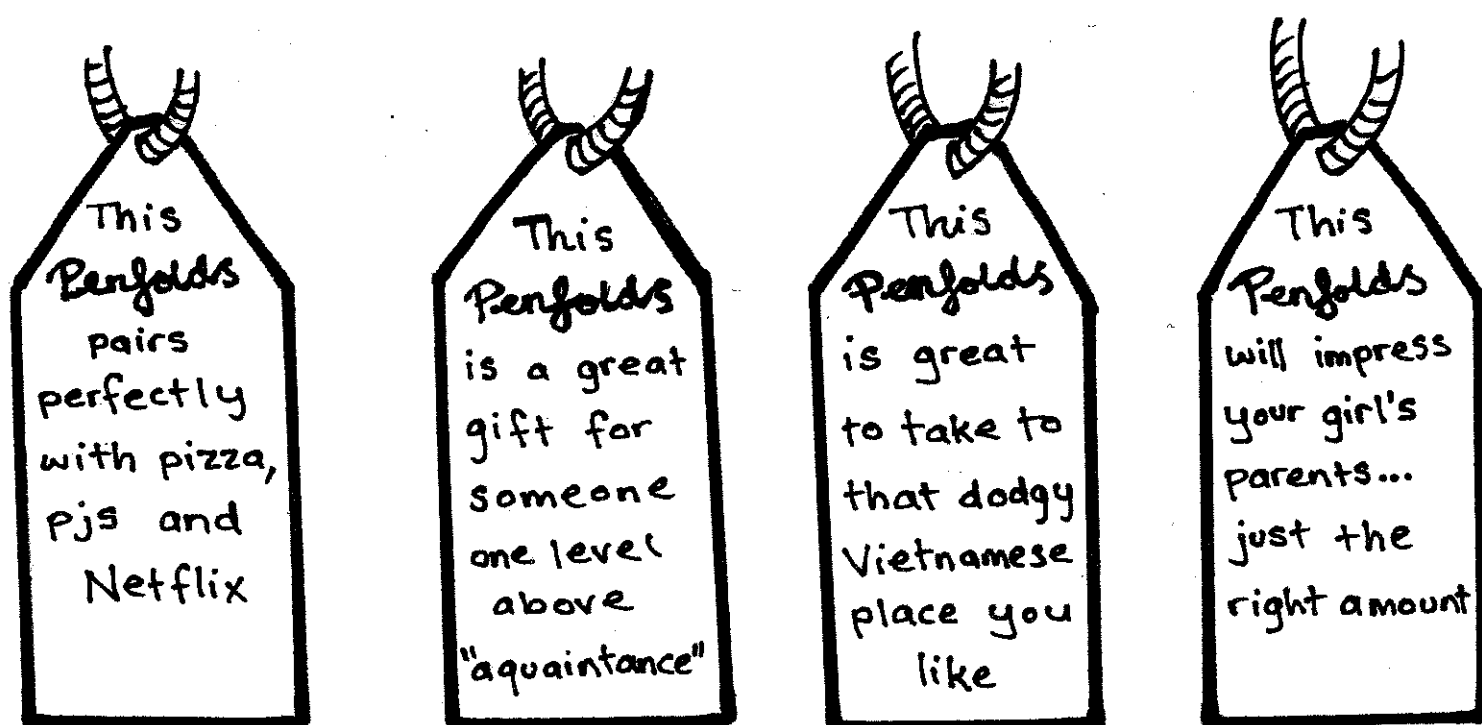 This
Penfolds
pairs
perfectly
with pizza,
pjs and
Netflix
This
Penfolds
is a great
gift for
someone
one level
above
"aquaintance"
This
Penfolds
is great
to take to
that dodgy
Vietnamese
place you
like
This
Penfolds
will impress
your girl's
parents...
just the
right amount